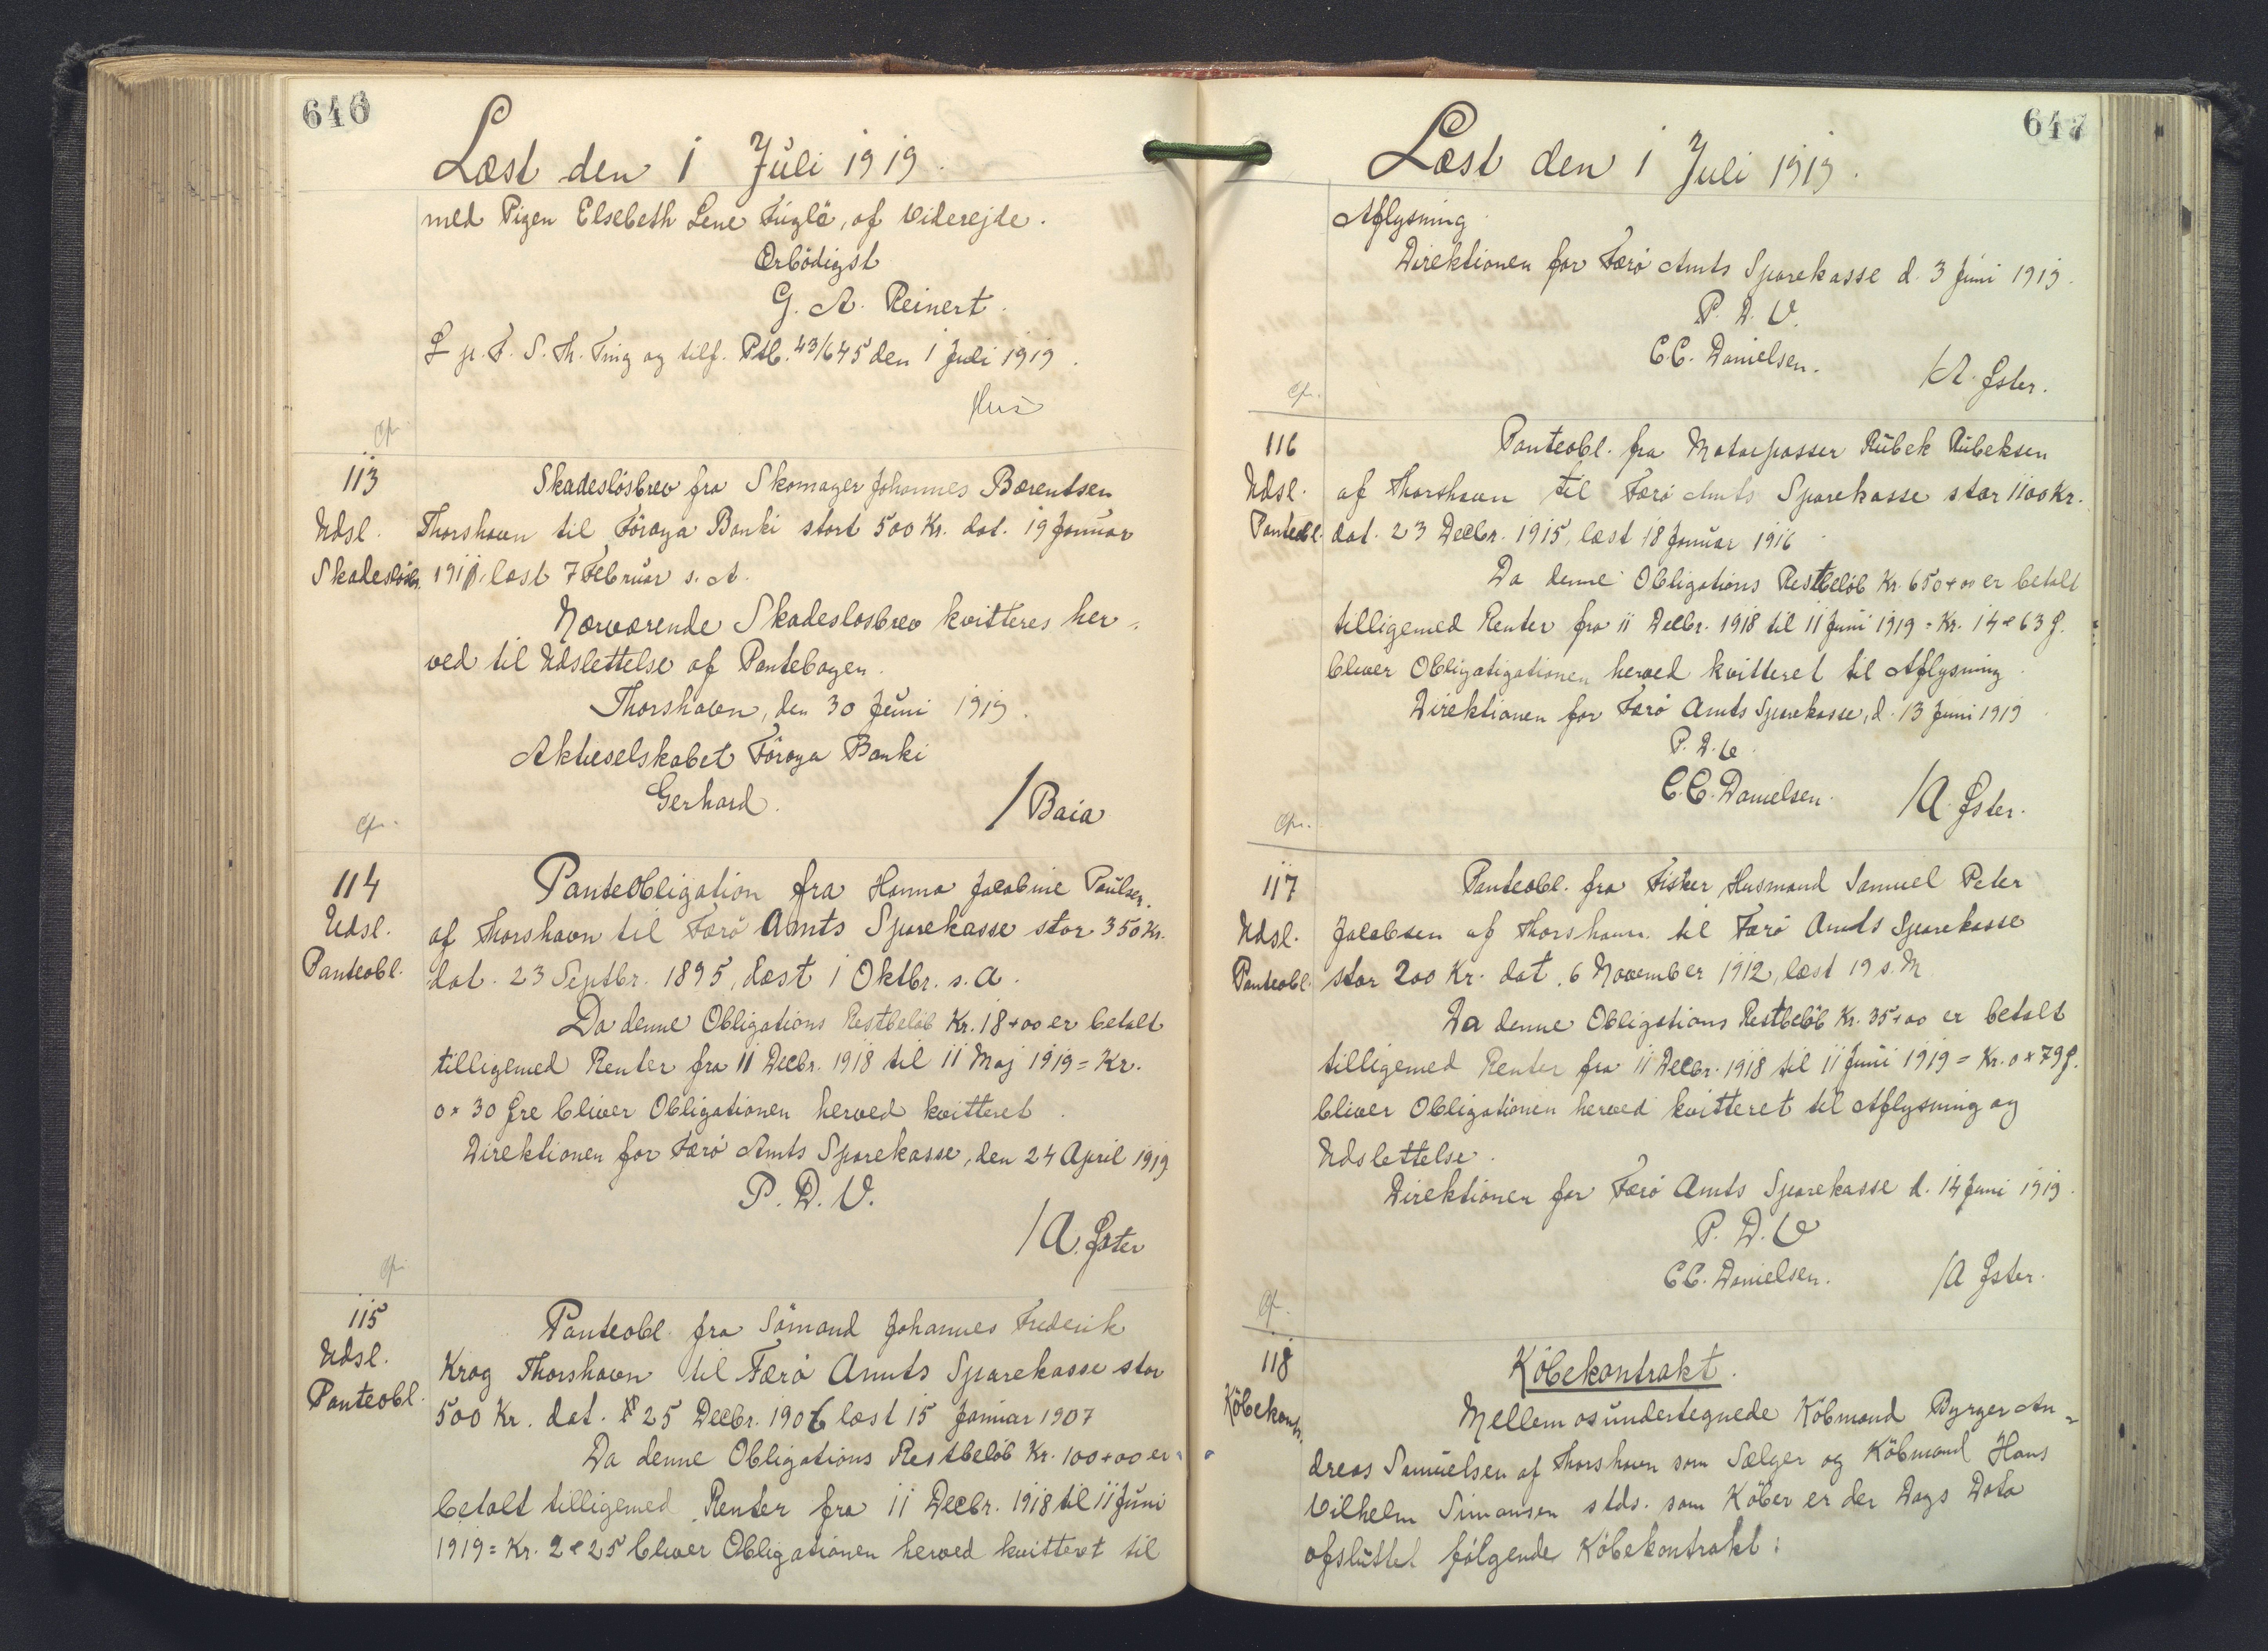 646
Læst den 1 Juli 1919.
med Pigen Elsebeth Lene Fuglø, af Viderejde.
Ærbödigst
G. A. Reinert.
L p. F. S. Th. Ting og tilf. Ptb. 43/645 den 1 Juli 1919.
Cfr.
113
Udsl.
Skadeslösbr.
Skadeslösbrev fra Skomager Johannes Bærentsen
Thorshavn til Föroya Banki stort 500 Kr. dat. 19 Januar
læst 7 Februar s. A.
Nærværende Skadeslosbrev kvitteres her-
ved til Udslettelse af Pantebogen.
Thorshavn, den 30 Juni 1919.
Aktieselskabet Föroya Banki
Gerhard.
/Baia
Cfr.
114
Udsl.
Panteobl.
PanteObligation fra Hanna Jacobine Paulsen.
af Thorshavn til Færö Amts Sparekasse stor 350 Kr.
dat. 23 Septbr. 1895, læst 1 Oktbr. s. A.
Da denne Obligations Restbelöb Kr. 18+00 er betalt
tilligemed Renter fra 11 Decbr. 1918 til 11 Maj 1919 = Kr.
0+30 Øre bliver Obligationen herved kvitteret.
Direktionen for Færö Amts Sparekasse, den 24 April 1919
P. D. V.
/A. Øster
Cfr.
115
Udsl.
Panteobl.
Panteobl. fra Sömand Johannes Frederik
Krog Thorshavn til Færö Amts Sparekasse stor
500 Kr. dat. 25 Decbr. 1906 læst 15 Januar 1907
Da denne Obligations Restbelöb Kr. 100+00 er
betalt tilligemed Renter fra 11 Decbr. 1918 til 11 Juni
1919 = Kr. 2+25 bliver Obligationen herved kvitteret til
647
Læst den 1 Juli 1919.
Aflysning.
Direktionen for Færö Amts Sparekasse d. 3 Juni 1919.
P. D. V.
C.C. Danielsen.
/A. Øster.
Cfr.
116
Udsl.
Panteobl.
Panteobl. fra Motorpasser Rubek Rubeksen
af Thorshavn til Færö Amts Sparekasse stor 1100 Kr.
dat. 23 Decbr. 1915, læst 18 Januar 1916.
Da denne Obligations Restbelöb Kr. 650+00 er betalt
tilligemed Renter fra 11 Decbr. 1918 til 11 Juni 1919 = Kr. 14+63 Ø.
bliver Obligatigationen herved kvitteret til Aflysning.
Direktionen for Færö Amts Sparekasse, d. 13 Juni 1919.
P. D. V.
C.C. Danielsen.
/A. Øster.
Cfr.
117
Udsl.
Panteobl.
Panteobl. fra Fisker, Husmand Samuel Peter
Jacobsen af Thorshavn til Færö Amts Sparekasse
stor 200 Kr. dat. 6 November 1912, læst 19 s. M
Da denne Obligations Restbelöb Kr. 35+00 er betalt
tilligemed Renter fra 11 Decbr. 1918 til 11 Juni 1919 = Kr. 0+79 Ø.
bliver Obligationen herved kvitteret til Aflysning og
Udslettelse.
Direktionen for Færö Amts Sparekasse d. 14 Juni 1919.
P. D. V
C.C. Danielsen.
/A Øster.
Cfr.
118
Köbekontr.
Köbekontrakt.
Mellem os undertegnede Köbmand Byrger An-
dreas Samuelsen af Thorshavn som Sælger og Köbmand Hans
Vilhelm Simonsen stds. som Köber er der Dags Dato
afsluttet fölgende Köbekontrakt: